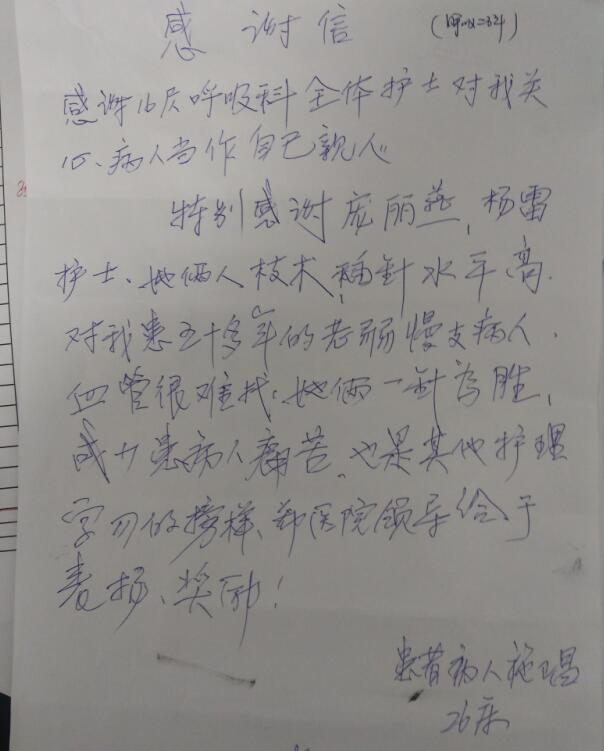 感谢信 (呼吸二科)
感谢16层呼吸科全体护士对我关
心、病人当作自己亲人
特别感谢庞丽燕,杨雷
护士、她俩人技术,插针水平高.
对我患五十多年的老弱慢支病人.
血管很难找.她俩一针为胜,
减少患病人痛苦、也是其他护理
学习的榜样、都医院领导给于
表扬、奖励!
患者病人施 昌
26床